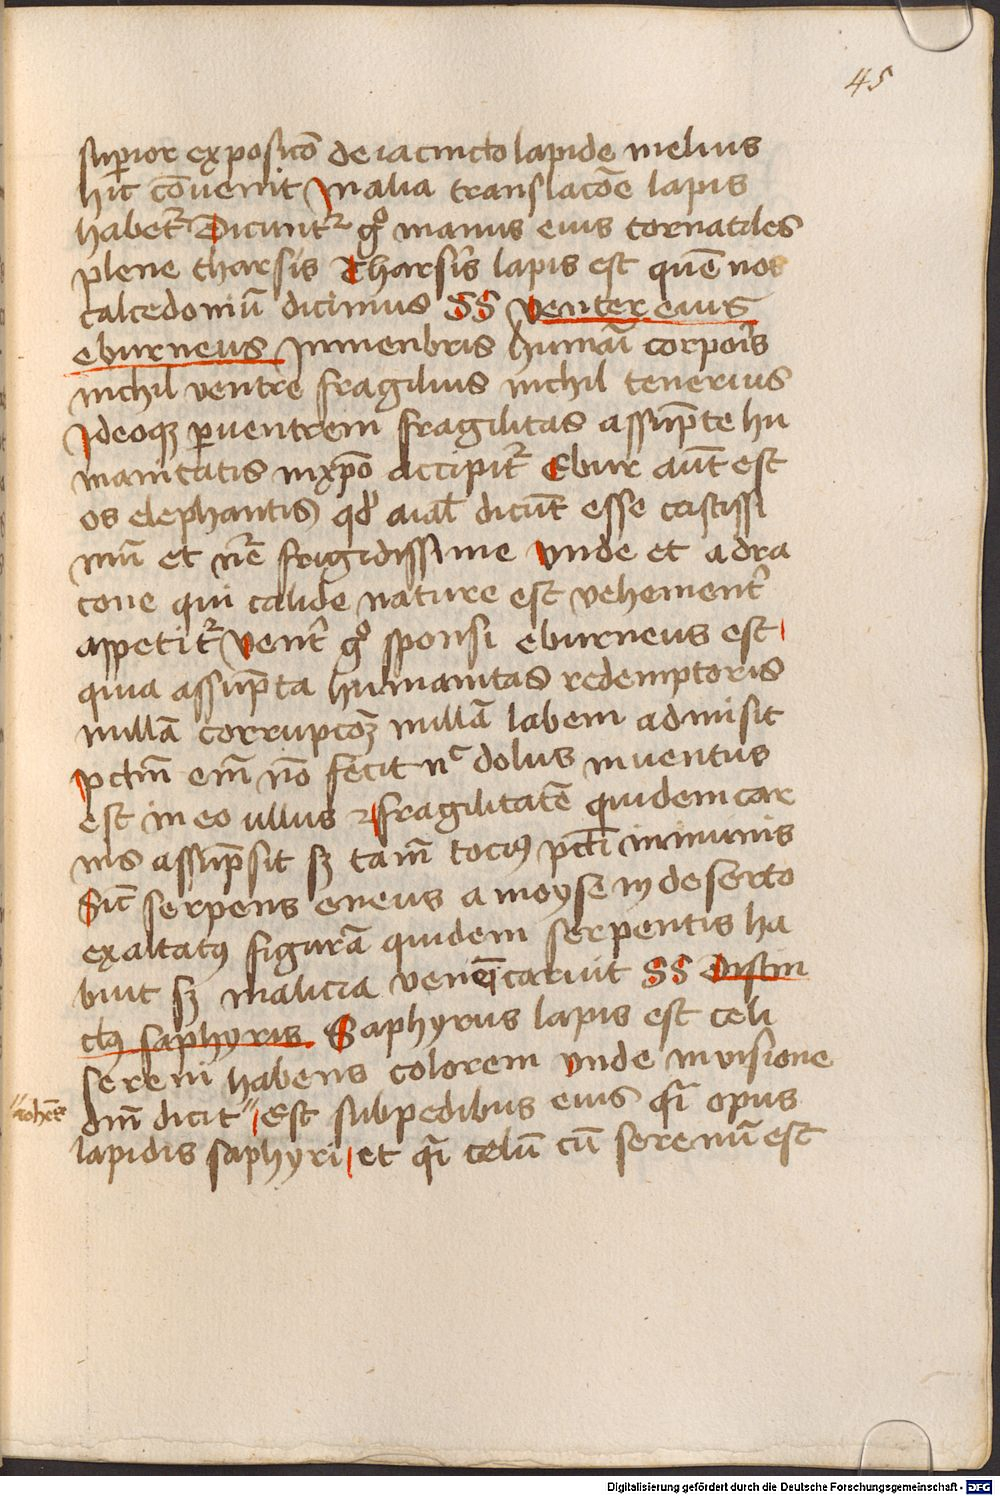 45
sup̄ior exposicō de iacincto lapide melius
hic cōvenit In alia translacōe lapis
habet᷑ Dicunt᷑ gͦ manus eius tornatiles
plene tharsis Tharsis lapis est quē nos
calcedoniū dicimus SS Venter eius
eburneus In menbris humāi corpoīs
nichil ventre fragilius nichil tenerius
Ideoqꝫ ꝑ ventrem fragilitas assūpte hu
manitatis in xp̄o accipit᷑ Ebur aūt est
os elephantis qd̓ aīal dicūt esse castissi
mū et n̄re frigidissime Vnde et a dra
cone qui calide nature est vehement᷑
appetit᷑ Vent᷑ gͦ sponsi eburneus est
quia assūpta humanitas redemptoris
nullā corrupcoꝫ nullā labem admisit
pctm̄ em̄ nō fecit nͨ dolus inventus
est in eo ullus ⁊ fragilitatē quidem car
nis assūpsit sꝫ tam̄ tociꝰ pcti īmunis
Sic̄ serpens eneus a moyse in deserto
exaltatꝰ figurā quidem serpentis ha
buit sꝫ malicia venēi caruit SS Distin
ctꝰ saphyris Saphyrus lapis est celi
sereni habens colorem Vnde in visione
dm̄ dicit'' Est sub pedibus eius q̄i opus
lapidis saphyri et q̄i celū cū serenū est
Digitalisierung gefördert durch die Deutsche Forschungsgemeinschaft - DFG